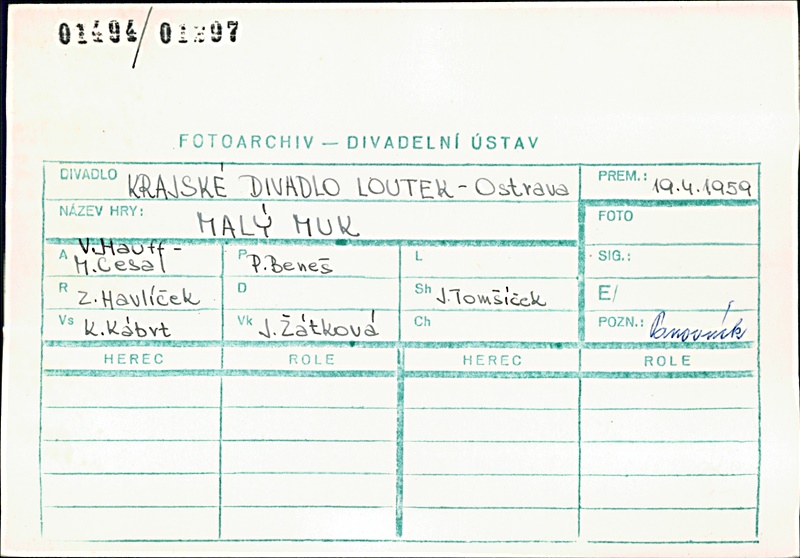 01494/01497
FOTOARCHIV — DIVADELNÍ ÚSTAV
DIVADLO KRAJSKÉ DIVADLO LOUTEK - Ostrava PREM.: 19.4.1959
NÁZEV HRY: MALÝ MUK FOTO
A V.Hauff - M.Cesal P P.Beneš L SIG.:
R Z.Havlíček D Sh J.Tomšíček E/
Vs K.Kábrt Vk J.Žátková Ch POZN.: Panovník
HEREC ROLE HEREC ROLE